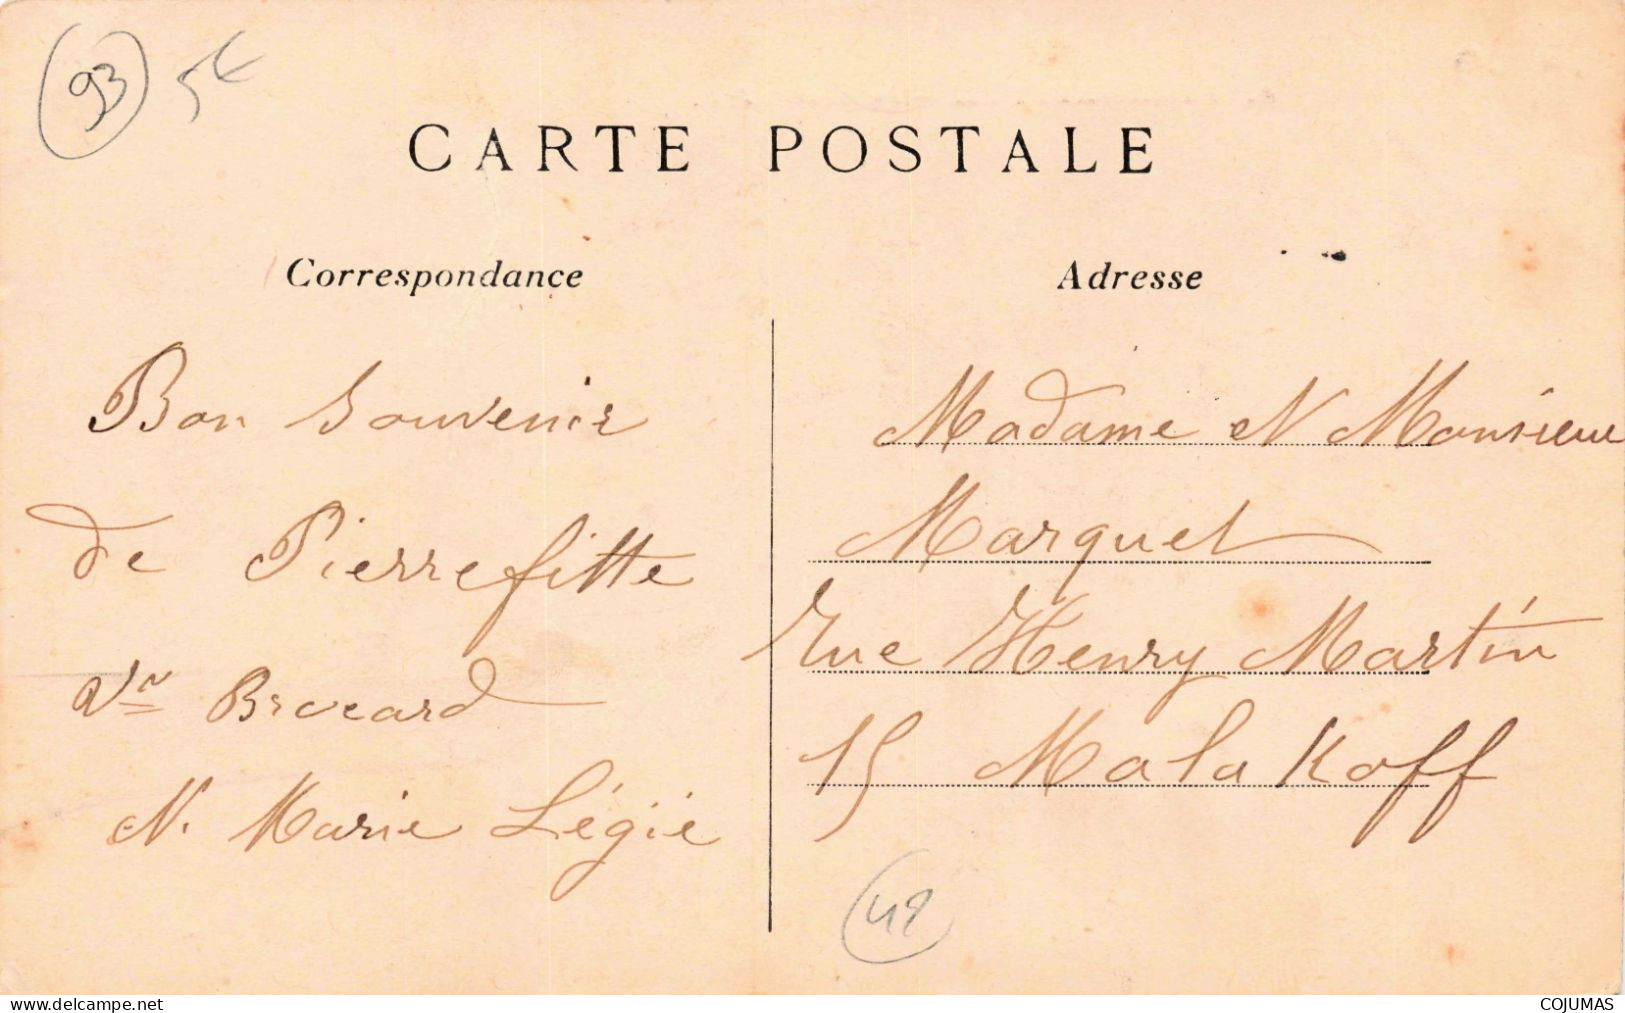 93
5€
CARTE POSTALE
Correspondance
Bon Souvenir
de Pierrefitte
Vve Brocard
N. Marie Légié
Adresse
Madame et Monsieur
Marquet
rue Henry Martin
15 Malakoff
48
www.delcampe.net
COJUMAS